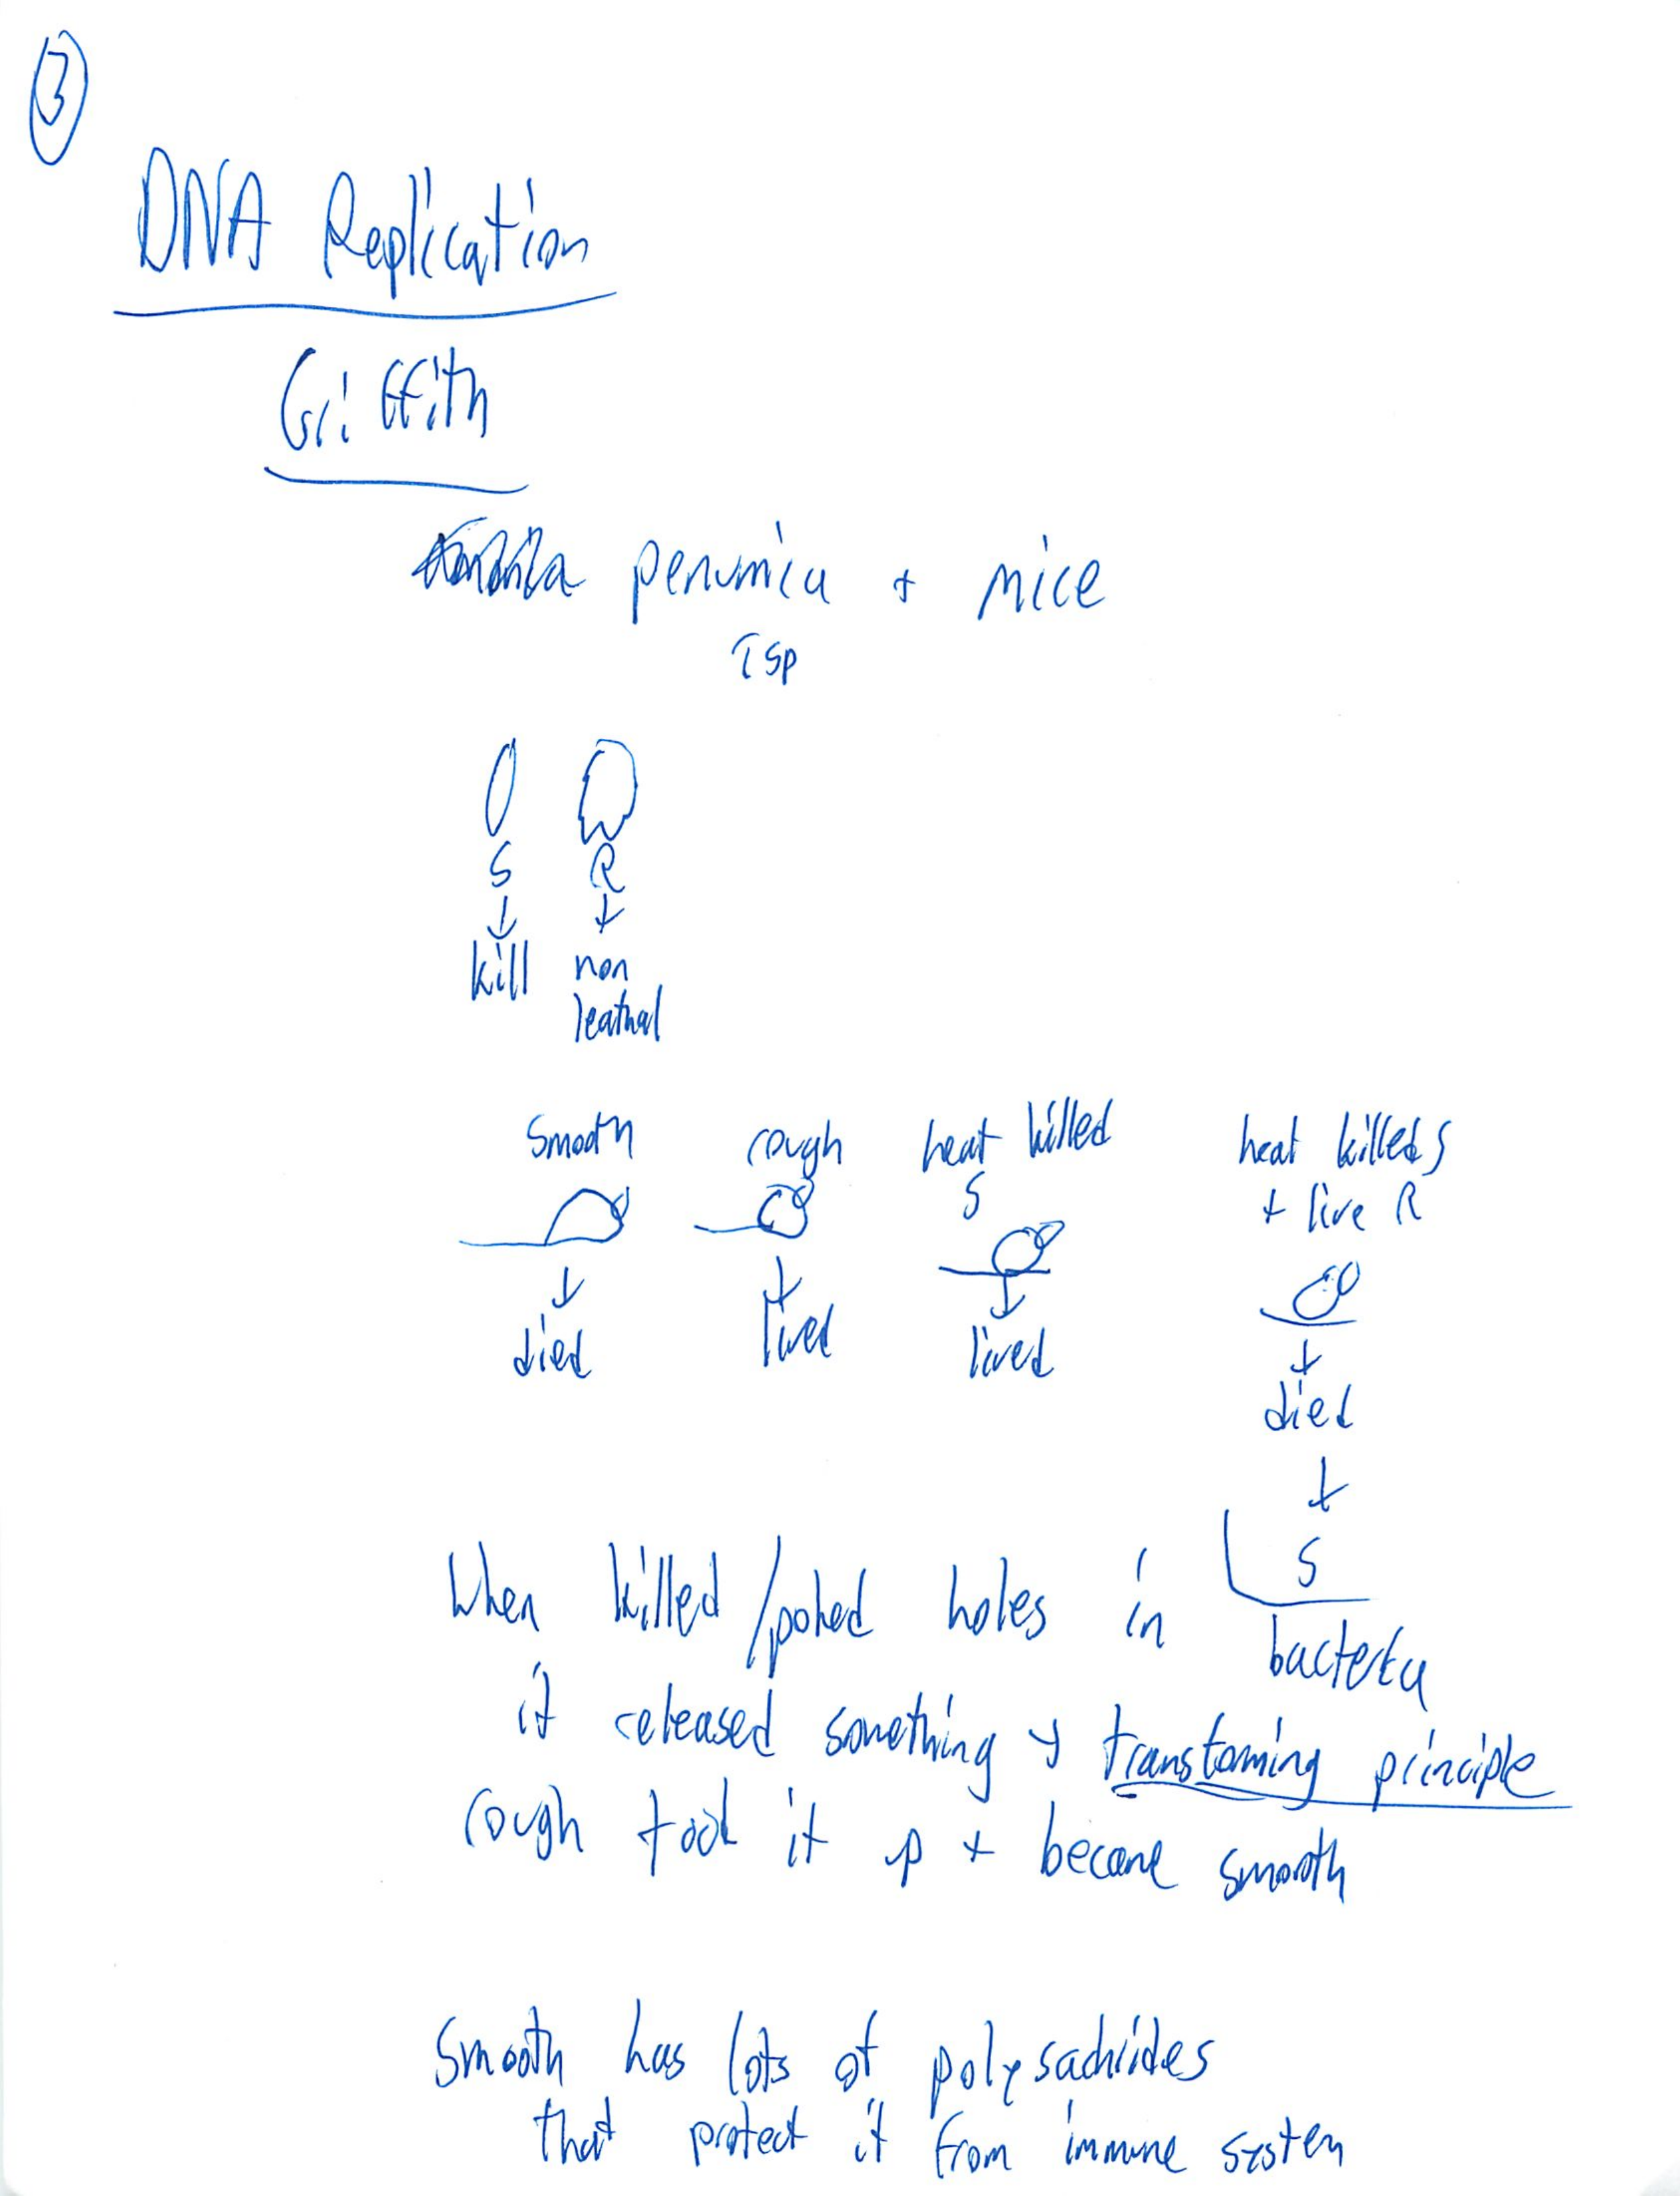 3
DNA Replication
Griffith
penumica + mice
↑ sp
S R
↓ ↓
kill non
leathal
smooth rough heat killed S heat killed S + live R
↓ ↓ ↓ ↓
died lived lived died
↓
S
When killed / poked holes in bacteria
it released something → transforming principle
rough took it up + became smooth
Smooth has lots of polysachrides
that protect it from immune system